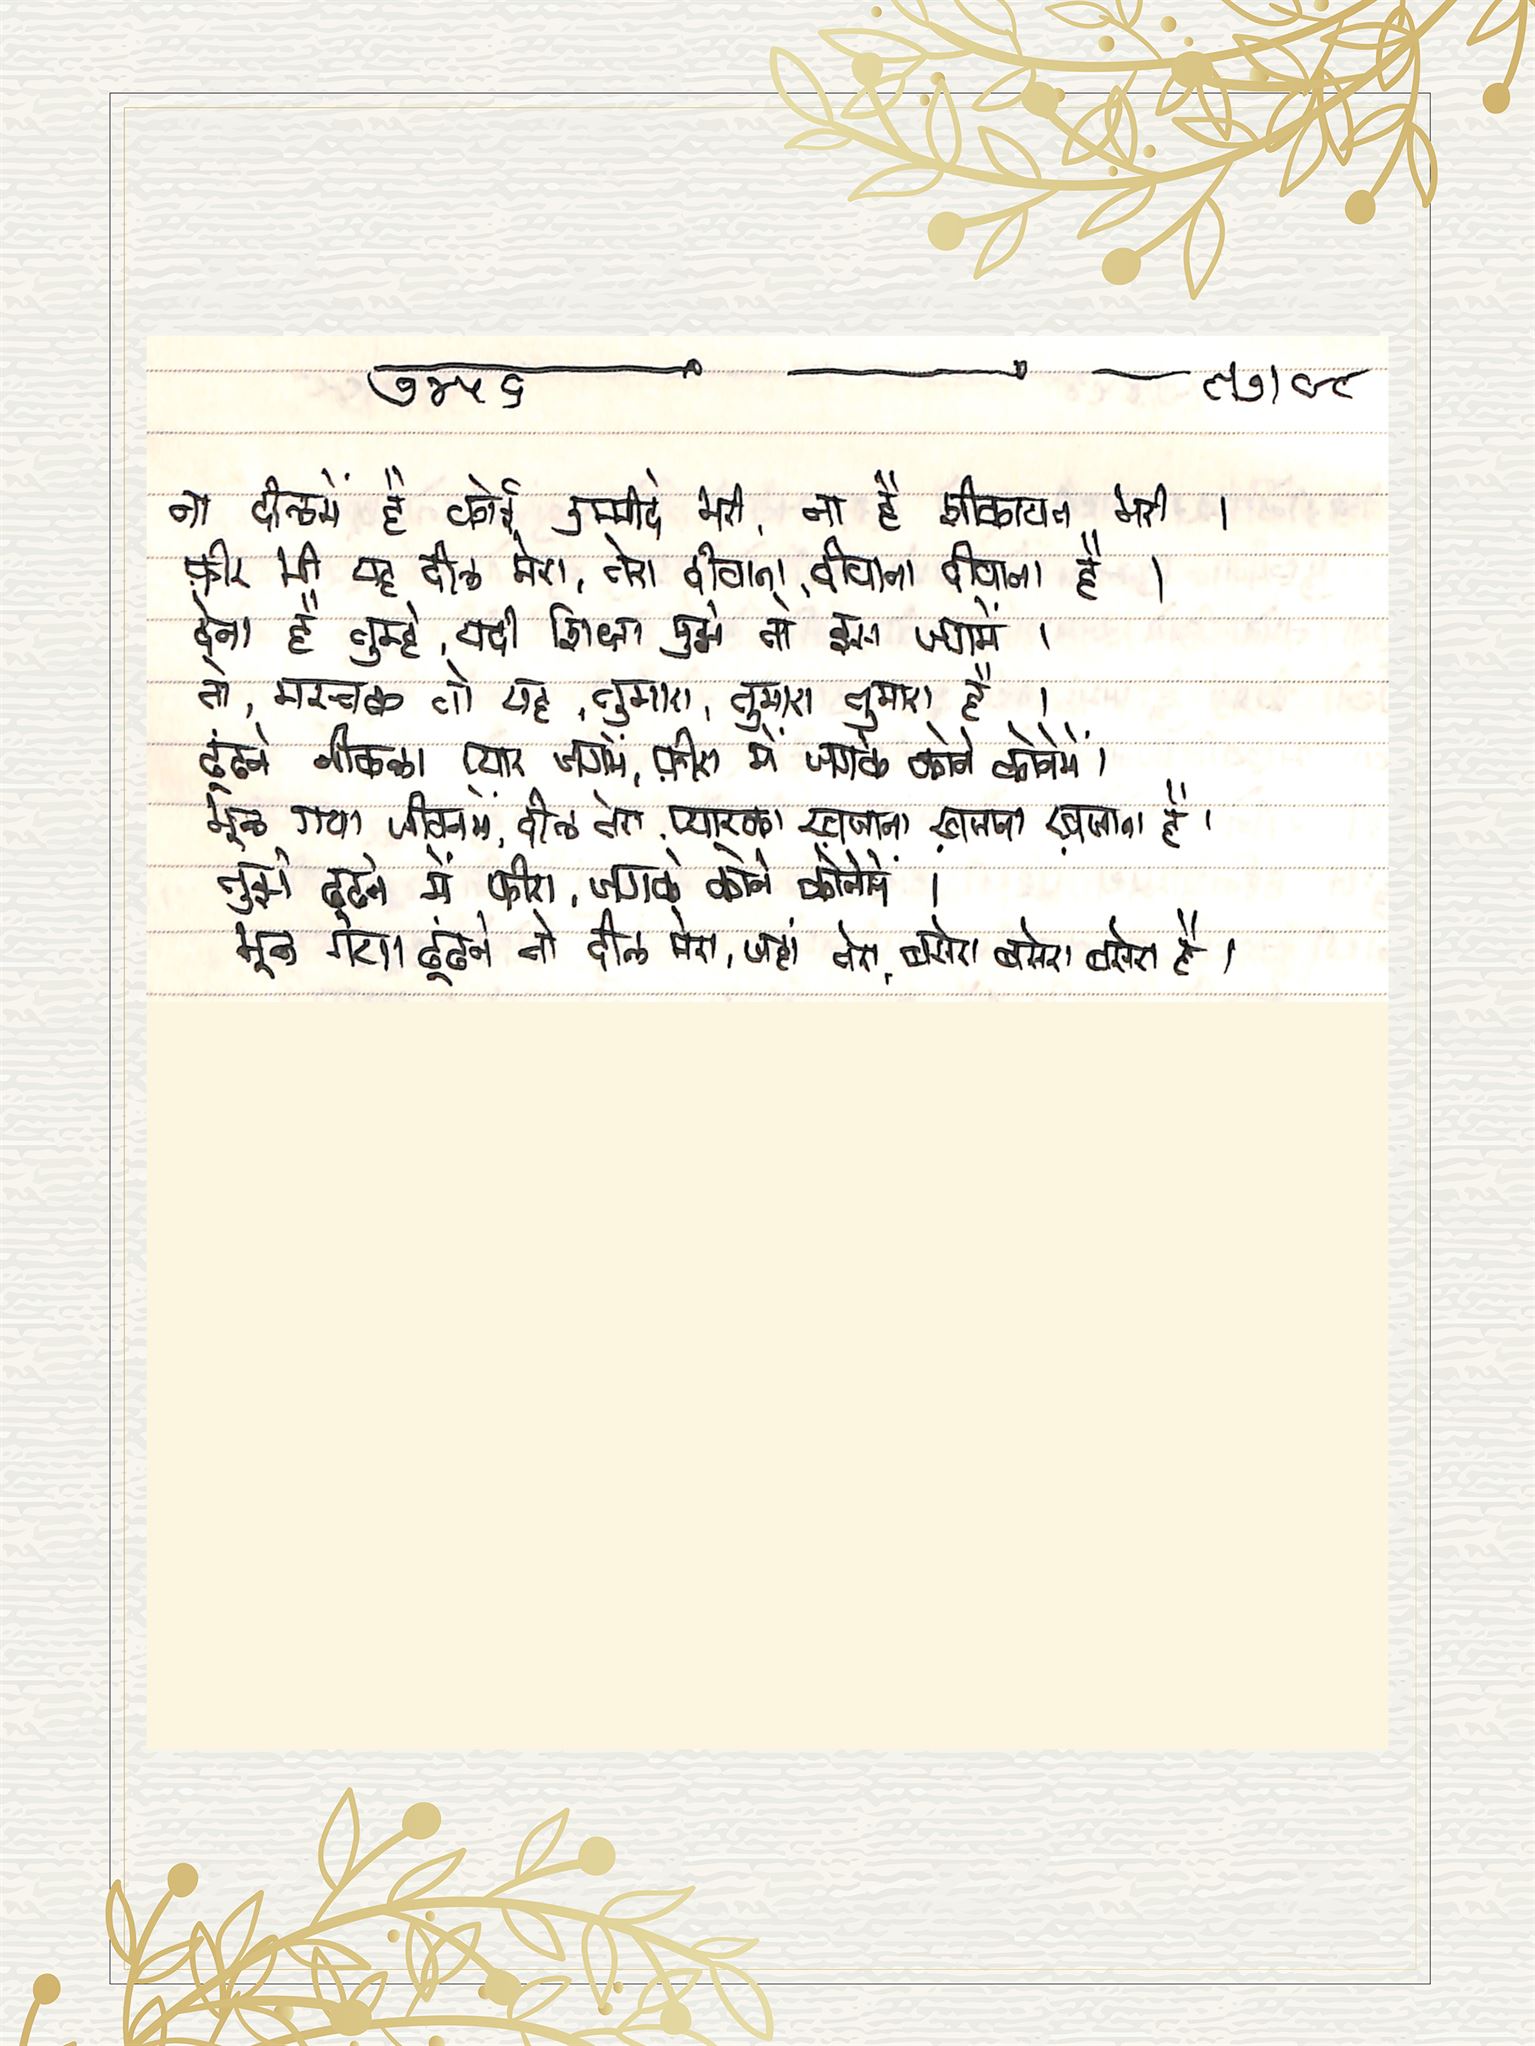 ना दीलमें है कोई उम्मीदे भरी, ना है शीकायत भरी ।
फ़ीर भी यह दील मेरा, तेरा दीवाना, दीवाना दीवाना है ।
देना है तुम्हे, यदी शिक्षा मुझे तो इस जगमें ।
तो, मस्तक तो यह, तुमारा, तुमारा तुमारा है ।
ढूंढने नीकला प्यार जगमें, फ़ीरा में जगके कोने कोनेमें ।
भूल गया जीवनमें, दील तेरा, प्यारका ख़जाना ख़जाना ख़जाना है ।
तुझे ढूढने में फीरा, जगके कोने कोनेमें ।
भूल गया ढूंढने तो दील मेरा, जहां तेरा, बसेरा बसेरा बसेरा है ।